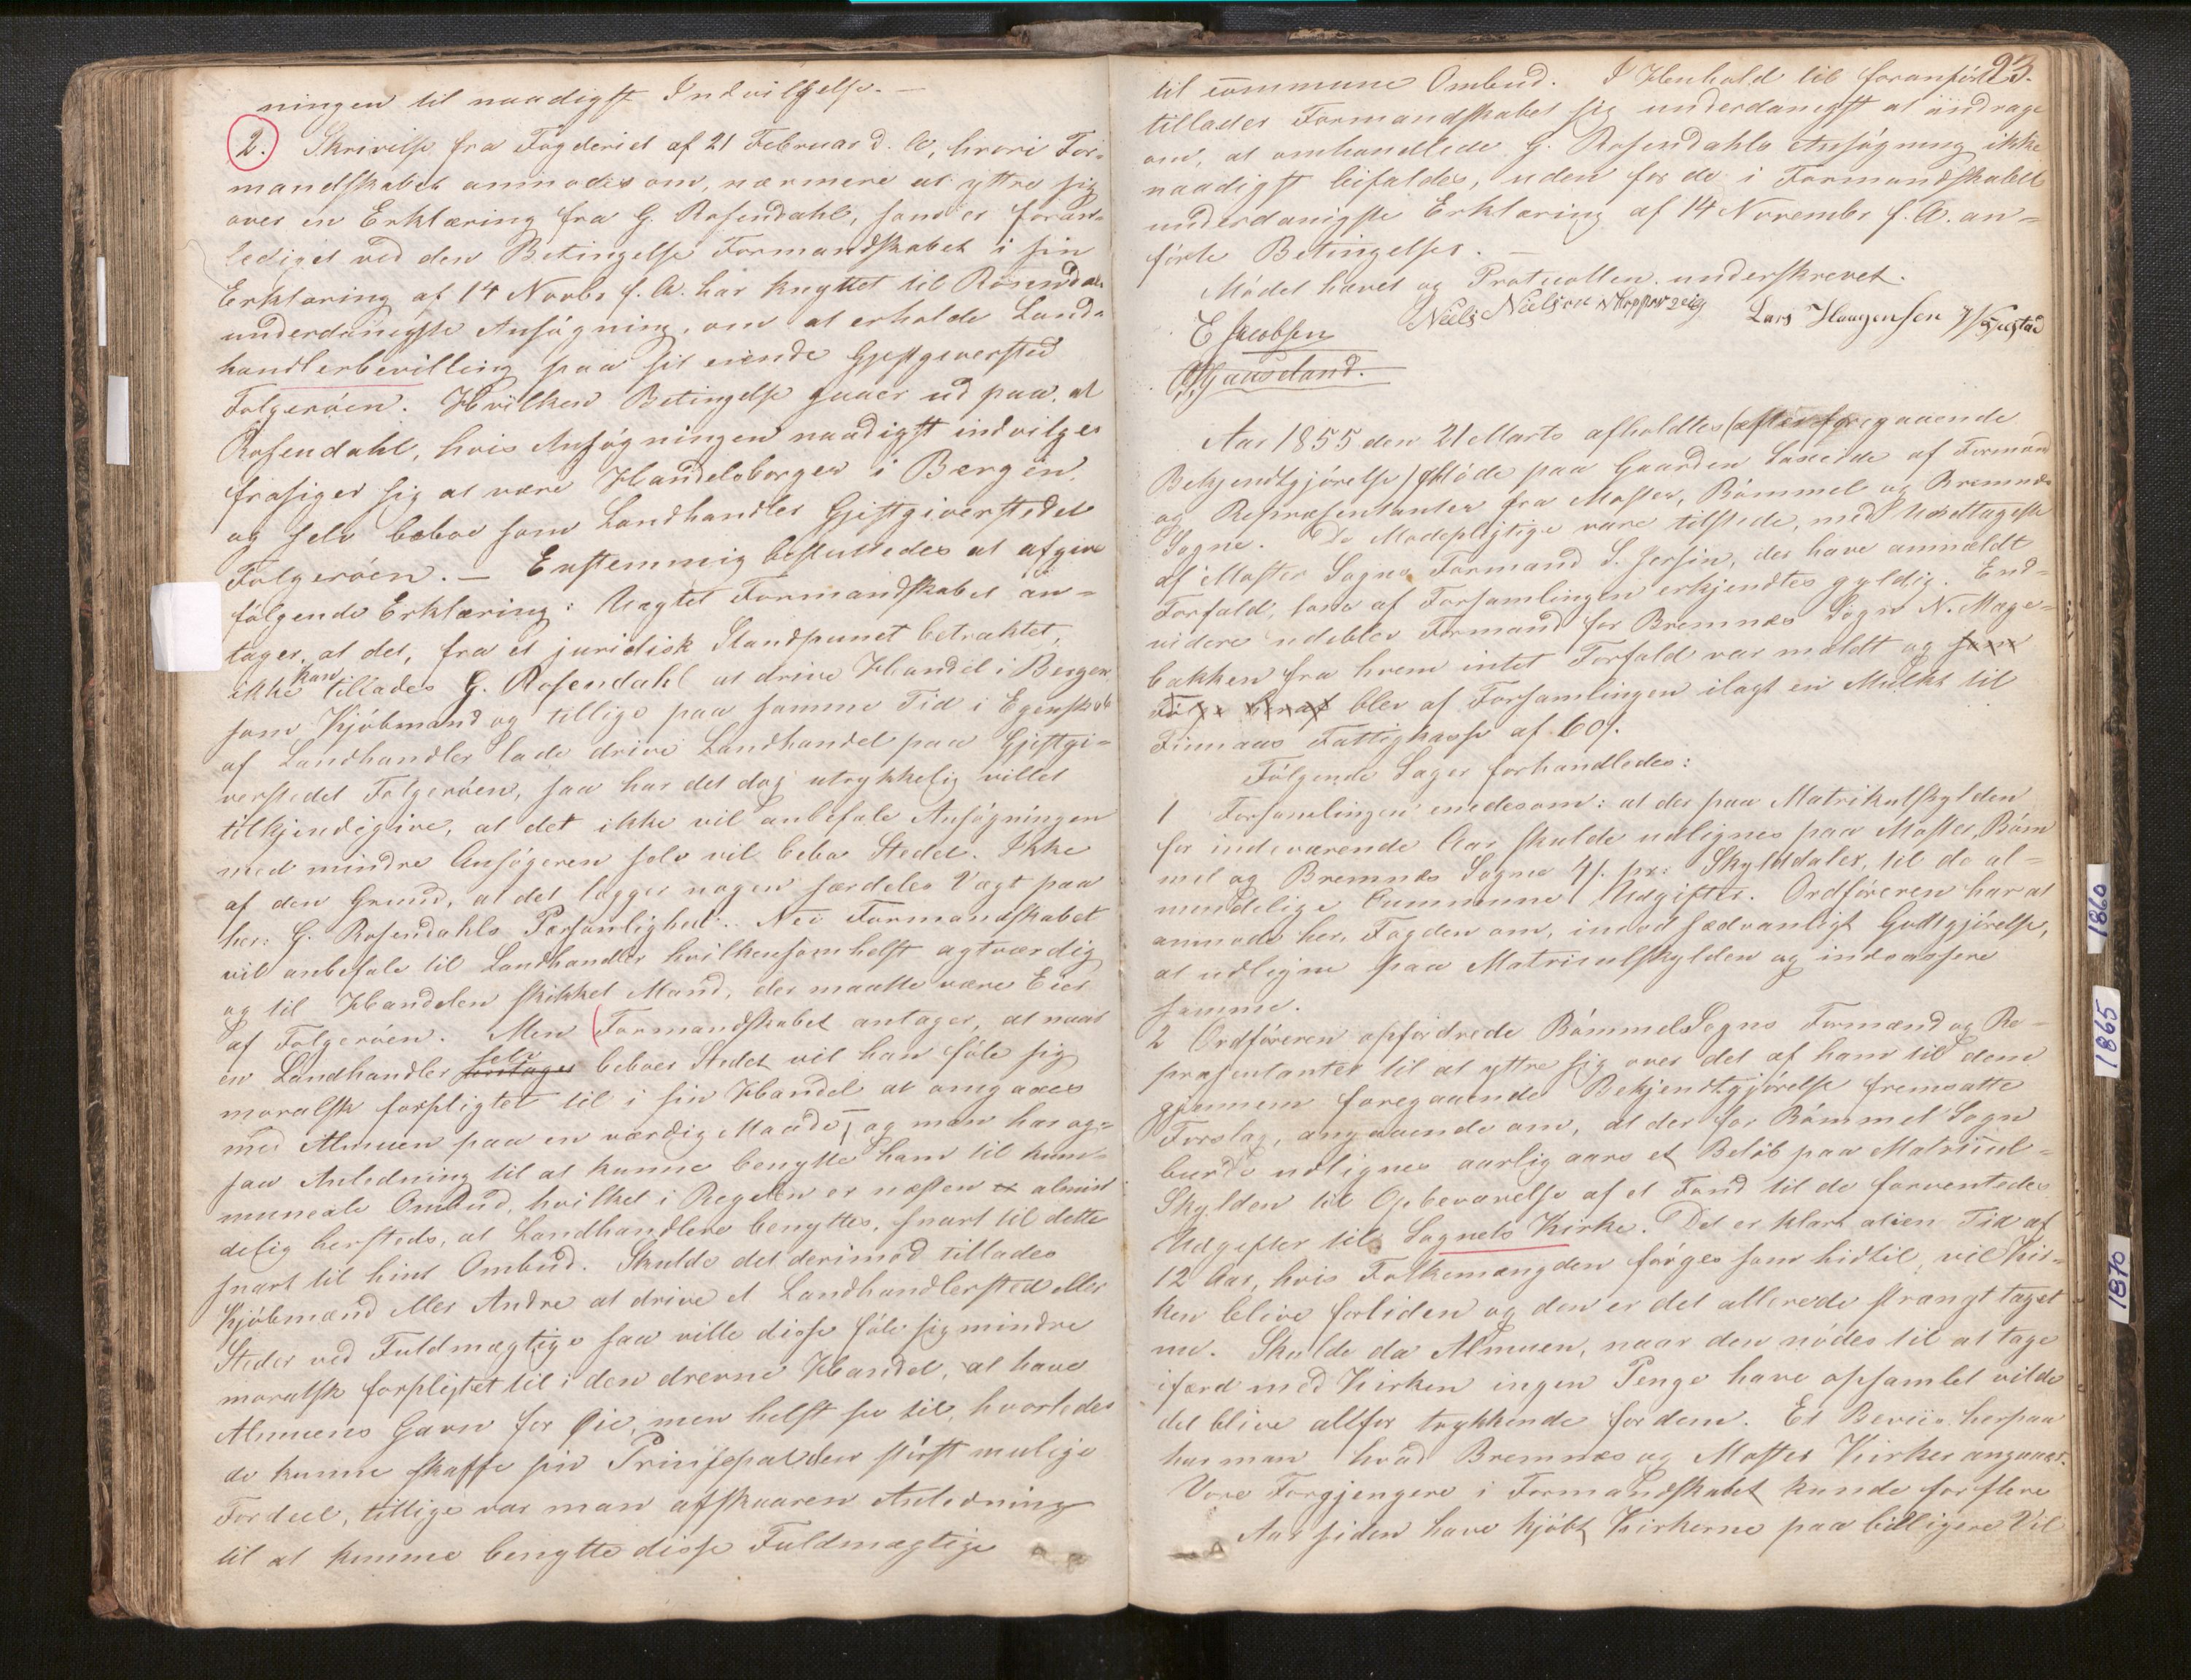 ningen til naadigst Indvilgelse. —
2. Skrivelse fra Fogderiet af 21 Februar d. A, hvori For-
mandskabet anmodes om, nærmere at yttre sig
over en Erklæring fra G. Rosendahl, som er foran-
lediget ved den Betingelse Formandskabet i sin
Erklæring af 14 Novbr f. A. har knyttet til Rosendals
underdanigste Ansøgning, om at erholde Land-
handlerbevilling paa sit eiende Gjestgiversted
Folgerøen. Hvilken Betingelse gaaer ud paa, at
Rosendahl, hvis Ansøgningen naadigst indvilges
frasiger sig at være Handelsborger i Bergen,
og selv beboe som Landhandler Gjestgiverstedet
Folgerøen. — Enstemmig besluttedes at afgive
følgende Erklæring: Uagtet Formandskabet an-
tager, at det, fra et juridisk Standpunct betraktet,
ikke kan tillades G. Rosendahl at drive Handel i Bergen
som Kjøbmand og tillige paa samme Tid i Egenskab
af Landhandler lade drive Landhandel paa Gjestgi-
verstedet Folgerøen, saa har det dog utrykkelig villet
tilkjendegive, at det ikke vil anbefale Ansøgningen
med mindre Ansøgeren selv vil beboe Stedet. Ikke
af den Grund, at det lægger nogen særdeles Vægt paa
her: G. Rosendahls Personlighed. Nei Formandskabet
vil anbefale til Landhandler hvilkensomhelst agtværdig
og til Handelen skikket Mand, der maatte være Eier
af Folgerøen. Men Formandskabet antager, at naar
en Landhandler selv beboer Stedet vil han føle sig
moralsk forpligtet til i sin Handel at omgaaes
med Almuen paa en værdig Maade, og man har og-
saa Anledning til at kunne benytte ham til kom-
munale Ombud, hvilket i Regelen er næsten almin
delig hersteds, at Landhandlere benyttes, snart til dette
snart til hint Ombud. Skulde det derimod tillades
Kjøbmænd eller Andre at drive et Landhandlersted eller
Steder ved Fuldmægtige saa ville disse føle sig mindre
moralsk forpligtet til i den drevne Handel, at have
Almuens Gavn for Øie, men helst see til, hvorledes
de kunne skaffe sin Prinsipal den størst mulige
Fordeel, tillige var man afskaaren Anledning
til at kunne benytte disse Fuldmægtige
23.
til commune Ombud. I Henhold til foranførte
tillader Formandskabet sig underdanigst at andrage
om, at omhandlede G. Rosendahls Ansøgning ikke
naadigst bifaldes, uden for de i Formandskabets
underdanigste Erklæring af 14 November f. A. an-
førte Betingelser. —
Mødet hævet og Protocollen underskrevet.
E Jacobsen Niels Nielsen Lars Haagensen
Aar 1855 den 21 Marts afholdtes (efter foregaaende
Bekjendtgjørelse) Møde paa Gaarden Laxeide af Formænd
og Repræsentanter fra Moster, Bømmel og Bremnæs
Sogne. De Modepligtige vare tilstede, med Undtagelse
af Moster Sogns Formand S. Jersin, der have anmældt
Forfald, som af Forsamlingen erkjendtes gyldig. End-
videre udeblev Formand for Bremnæs Sogn N. Mæge-
bakken fra hvem intet Forfald var mældt og
blev af Forsamlingen ilagt en Mulkt til
Finnaas Fattigkasse af 60 s.
Følgende Sager forhandledes:
1 Forsamlingen enedes om: at der paa Matrikulskylden
for indeværende Aar skulde udlignes paa Moster, Bøm
mel og Bremnæs Sogne 4 s. pr: Skylddaler, til de al-
mindelige Commune Udgifter. Ordføreren har at
anmode her. Fogden om, imod sædvanligt Godtgjørelse,
at udligne paa Matriculskylden og indcassere
samme.
2 Ordføreren opfordrede Bømmel Sogns Formænd og Re-
præsentanter til at yttre sig over det af ham til dem
gjennem foregaaende Bekjendtgjørelse fremsatte
Forslag, angaaende om, at der for Bømmel Sogn
burde udlignes aarlig aars et Beløb paa Matricul-
Skylden til Opbevarelse af et Fond til de forventede
Udgifter til Sognets Kirke. Det er klart at i en Tid af
12 Aar, hvis Folkemængden forøges som hidtil, vil Kir-
ken blive forliden og den er det allerede strangt taget
nu. Skulde da Almuen, naar den nødes til at tage
ifærd med Kirken ingen Penge have opsamlet vilde
det blive altfor trykkende for dem. Et Beviis herpaa
har man hvad Bremnæs og Moster Kirker angaaer.
Vore Forgjengere i Formandskabet kunde for flere
Aar siden have kjøbt Kirkerne paa billigere Vil
1860
1865
1870